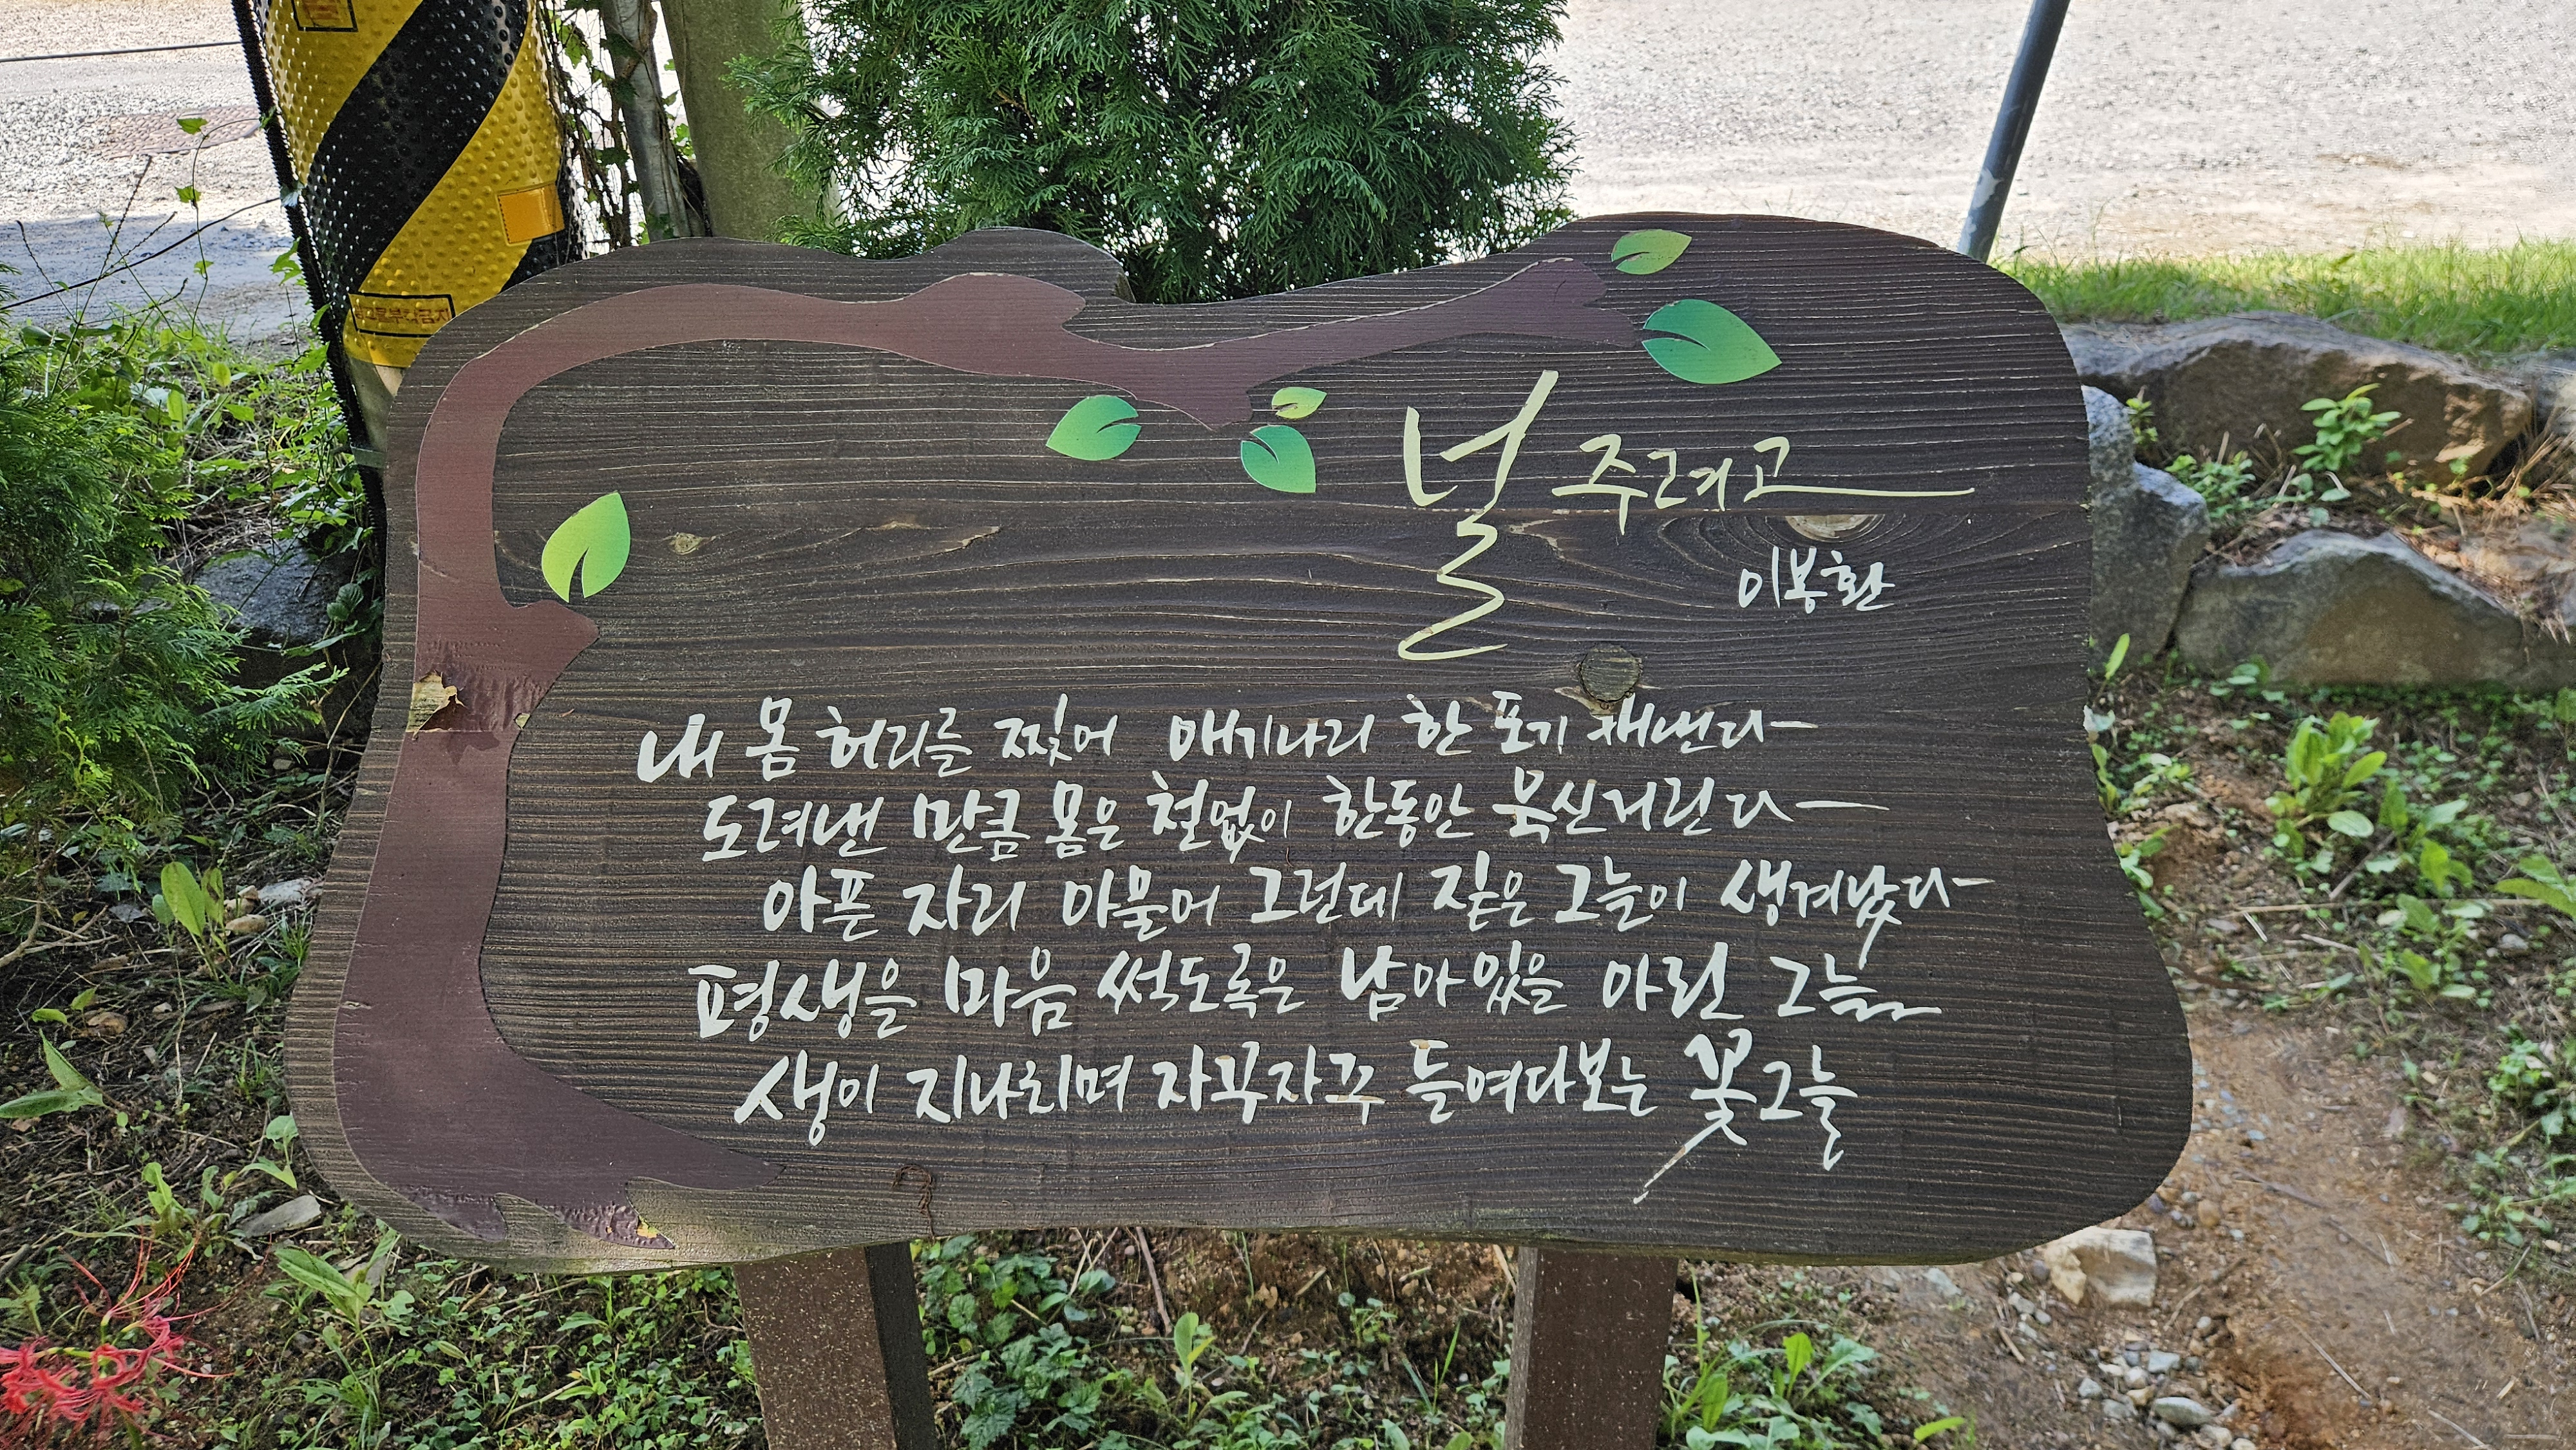 널 주려고
이봉환
내 몸 허리를 찢어 애기나리 한 포기 캐낸다
도려낸 만큼 몸은 철없이 한동안 북신거린다
아픈 자리 아물어 그런데 짙은 그늘이 생겨났다
평생을 마음 썩도록은 남아있을 아린 그늘
생이 지나치며 자꾸자꾸 들여다보는 꽃그늘